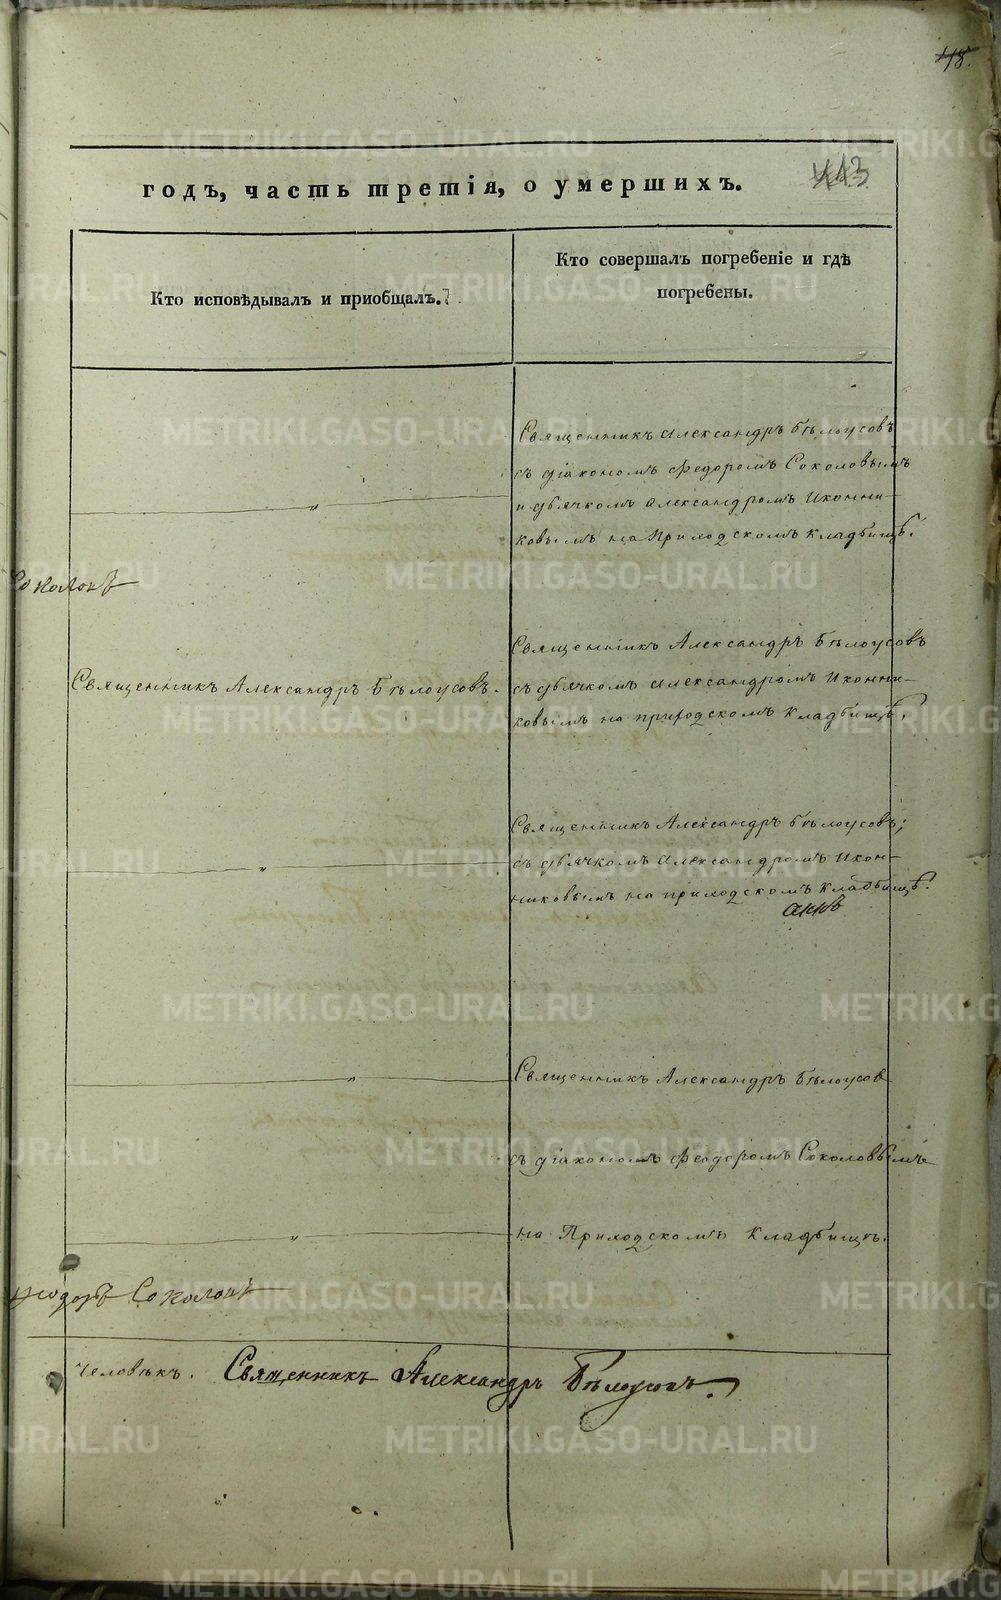 годъ, часть третія, о умершихъ.
Кто исповѣдывалъ и приобщалъ.
Кто совершалъ погребеніе и гдѣ
погребены.
Священникъ Александръ Бѣлоусовъ
съ діакономъ Федоромъ Соколовымъ
и дьячкомъ Александромъ Иконни-
ковымъ на Приходскомъ кладбищѣ.
Соколовъ
Священникъ Александръ Бѣлоусовъ.
Священникъ Александръ Бѣлоусовъ
съ дьячкомъ Александромъ Иконни-
ковымъ на приходскомъ кладбищѣ.
Священникъ Александръ Бѣлоусовъ;
съ дьячкомъ Александромъ Икон-
никовымъ на приходскомъ кладбищѣ.
Священникъ Александръ Бѣлоусов
съ діакономъ Феодоромъ Соколовымъ
на Приходскомъ кладбищѣ.
Соколовъ
человѣкъ. Священникъ Александръ Бѣлоусовъ.
METRIKI.GASO-URAL.RU